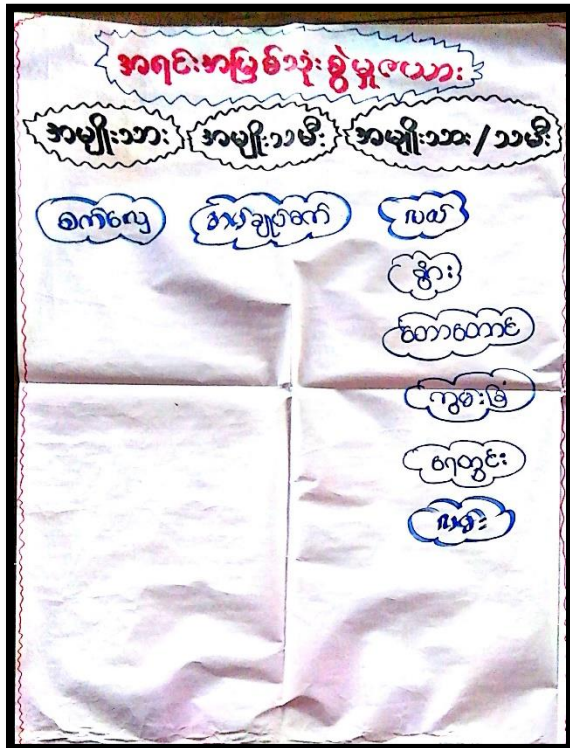 အရင်းအမြစ်သုံးစွဲမှုဇယား
အမျိုးသား အမျိုးသမီး အမျိုးသား/သမီး
စက်လှေ အပ်ချုပ်စက် လယ်
နွား
တောတောင်
ကွမ်းခြံ
ရေတွင်း
လမ်း